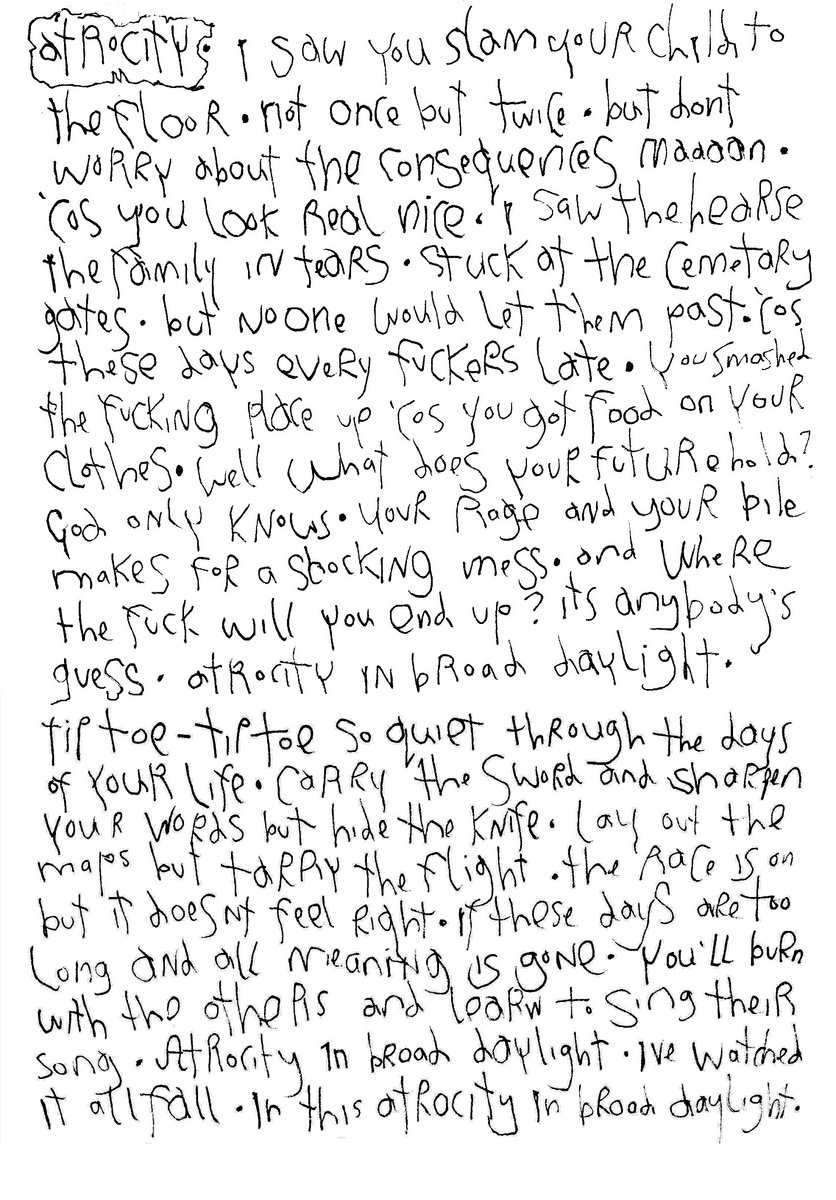 atrocity. I saw you slam your child to
the floor. not once but twice. but dont
worry about the consequences maaaan.
'cos you look real nice. I saw the hearse
the family in tears. stuck at the cemetary
gates. but no one would let them past. 'cos
these days every fuckers late. you smashed
the fucking place up 'cos you got food on your
clothes. well what does your future hold?
God only knows. your rage and your bile
makes for a shocking mess. and where
the fuck will you end up? its anybody's
guess. atrocity in broad daylight.
tip toe-tip toe so quiet through the days
of your life. carry the sword and sharpen
your words but hide the knife. lay out the
maps but tarry the flight. the race is on
but it doesnt feel right. if these days are too
long and all meaning is gone. you'll burn
with the others and learn to sing their
song. Atrocity in broad daylight. I've watched
it all fall. in this atrocity in broad daylight.